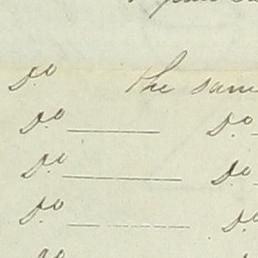 Do the same
Do Do
Do Do
Do Do
Do